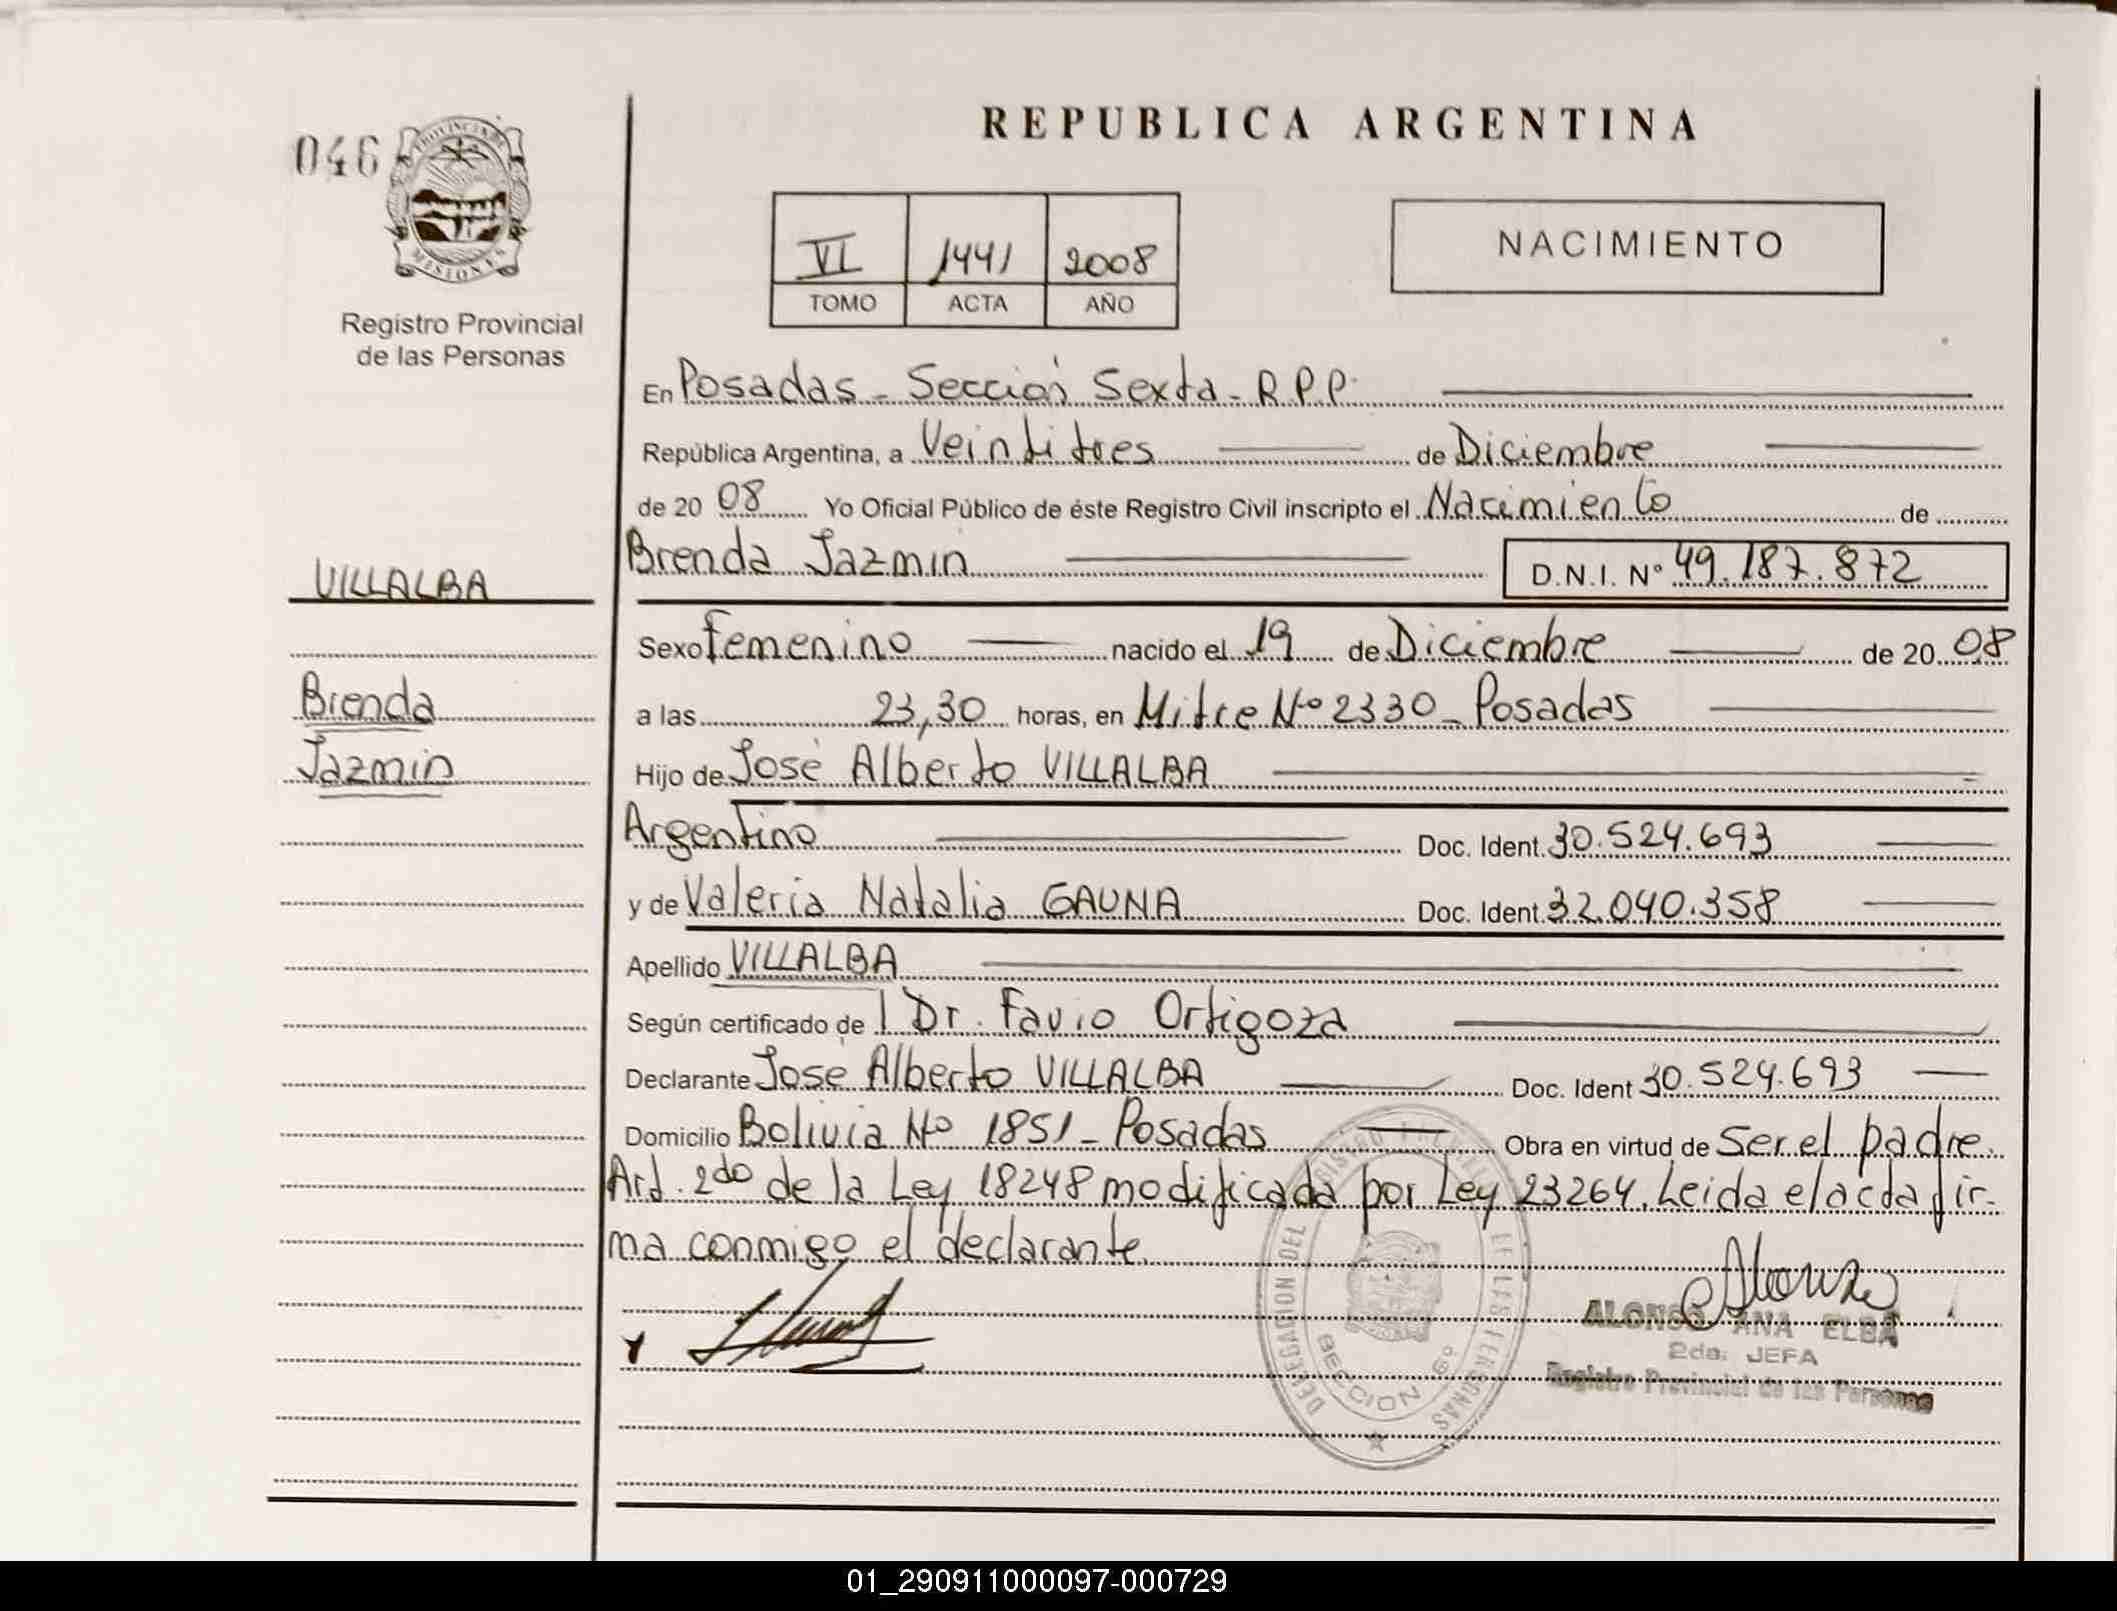 REPUBLICA ARGENTINA
046
PROVINCIA DE
MISIONES
Registro Provincial
de las Personas
VI 1441 2008
TOMO ACTA AÑO
NACIMIENTO
En Posadas - Sección Sexta - R.P.P.
República Argentina, a Veintitres de Diciembre
de 20 08 Yo Oficial Público de éste Registro Civil inscripto el Nacimiento de
VILLALBA
Brenda Jazmin D.N.I. Nº 49.187.872
Sexo Femenino nacido el 19 de Diciembre de 20 08
Brenda
a las 23,30 horas, en Mitre Nº 2330 - Posadas
Jazmin
Hijo de José Alberto VILLALBA
Argentino Doc. Ident. 30.524.693
y de Valeria Natalia GAUNA Doc. Ident. 32.040.358
Apellido VILLALBA
Según certificado de l Dr. Favio Ortigoza
Declarante José Alberto VILLALBA Doc. Ident 30.524.693
Domicilio Bolivia Nº 1851 - Posadas Obra en virtud de Ser el padre.
Art. 2do de la Ley 18248 modificada por Ley 23264. Leida el acta fir-
ma conmigo el declarante.
DELEGACION DEL REGISTRO PROVINCIAL DE LAS PERSONAS
SECCION 6º
Alonso
ALONSO ANA ELBA
2da. JEFA
Registro Provincial de las Personas
01_290911000097-000729